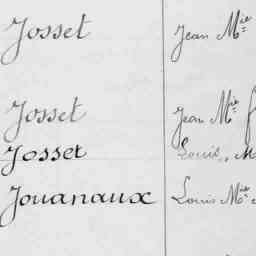 Josset Jean Mie
Josset Jean Mie
Josset Louis, M
Jouanaux Louis Mie